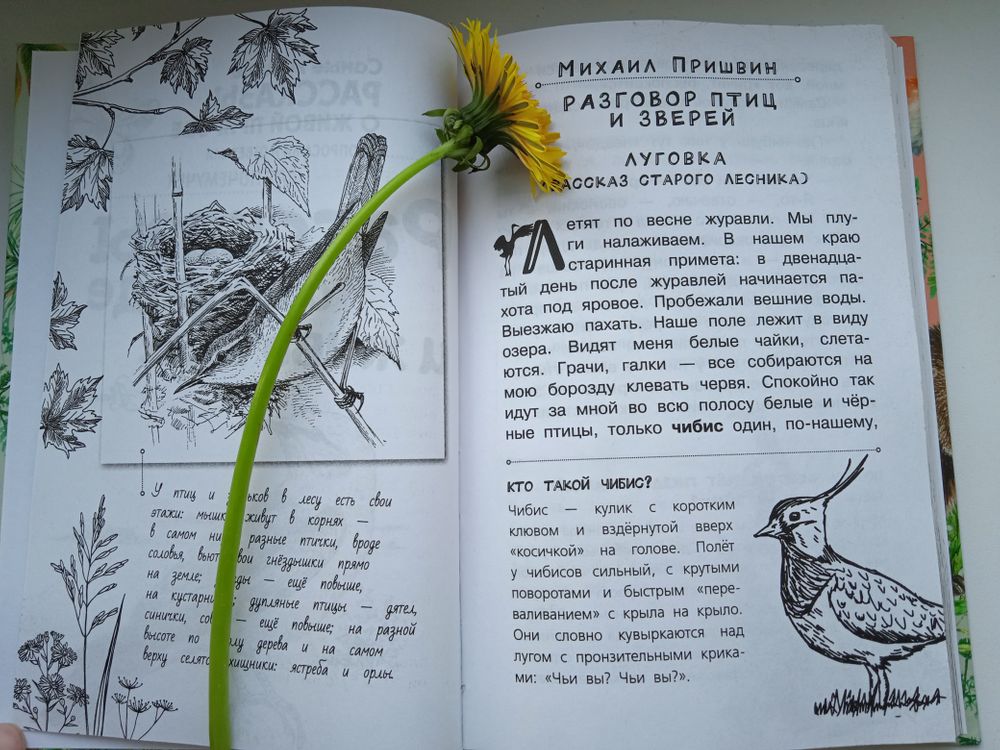 У птиц и зверьков в лесу есть свои
этажи: мышки живут в корнях —
в самом низу; разные птички, вроде
соловья, вьют свои гнёздышки прямо
на земле; дрозды — ещё повыше,
на кустарниках; дупляные птицы — дятел,
синички, совы — ещё повыше; на разной
высоте по стволу дерева и на самом
верху селятся хищники: ястреба и орлы.
МИХАИЛ ПРИШВИН
РАЗГОВОР ПТИЦ
И ЗВЕРЕЙ
ЛУГОВКА
(РАССКАЗ СТАРОГО ЛЕСНИКА)
Летят по весне журавли. Мы плу-
ги налаживаем. В нашем краю
старинная примета: в двенадца-
тый день после журавлей начинается па-
хота под яровое. Пробежали вешние воды.
Выезжаю пахать. Наше поле лежит в виду
озера. Видят меня белые чайки, слета-
ются. Грачи, галки — все собираются на
мою борозду клевать червя. Спокойно так
идут за мной во всю полосу белые и чёр-
ные птицы, только чибис один, по-нашему,
КТО ТАКОЙ ЧИБИС?
Чибис — кулик с коротким
клювом и вздёрнутой вверх
«косичкой» на голове. Полёт
у чибисов сильный, с крутыми
поворотами и быстрым «пере-
валиванием» с крыла на крыло.
Они словно кувыркаются над
лугом с пронзительными крика-
ми: «Чьи вы? Чьи вы?».